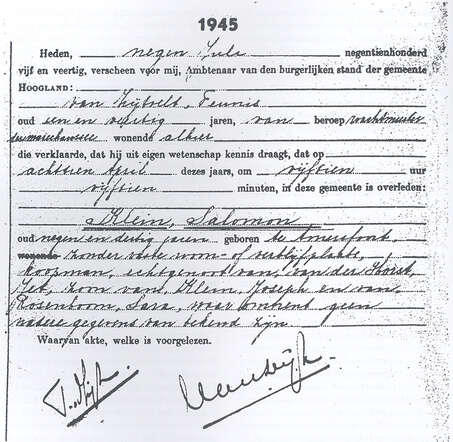 1945
Heden, negen Juli negentienhonderd
vijf en veertig, verscheen vóór mij, Ambtenaar van den burgerlijken stand der gemeente
HOOGLAND:
van Zijtvelt, Teunis
oud een en veertig jaren, van beroep wachtmeester
der marechaussee wonende alhier
die verklaarde, dat hij uit eigen wetenschap kennis draagt, dat op
achttien April dezes jaars, om vijftien uur
vijftien minuten, in deze gemeente is overleden:
Klein, Salomon
oud negen en dertig jaren geboren te Amersfoort,
wonende zonder vaste woon- of verblijfplaats,
koopman, echtgenoot van, van der Horst,
Jet, zoon van, Klein, Joseph en van
Rozenboom, Sara, waar omtrent geen
nadere gegevens van bekend zijn.
Waarvan akte, welke is voorgelezen.